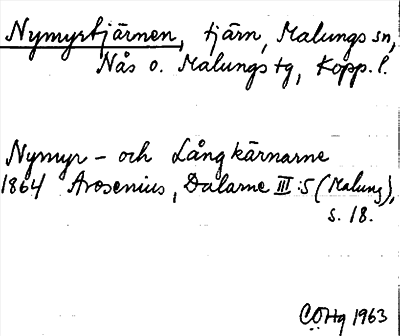 Nymyrtjärnen, tjärn, Malungs sn,
Nås o. Malungs tg, Kopp. l.
Nymyr- och Långkärnarne
1864 Arosenius, Dalarne III:5 (Malung),
s. 18.
CÖHg 1963